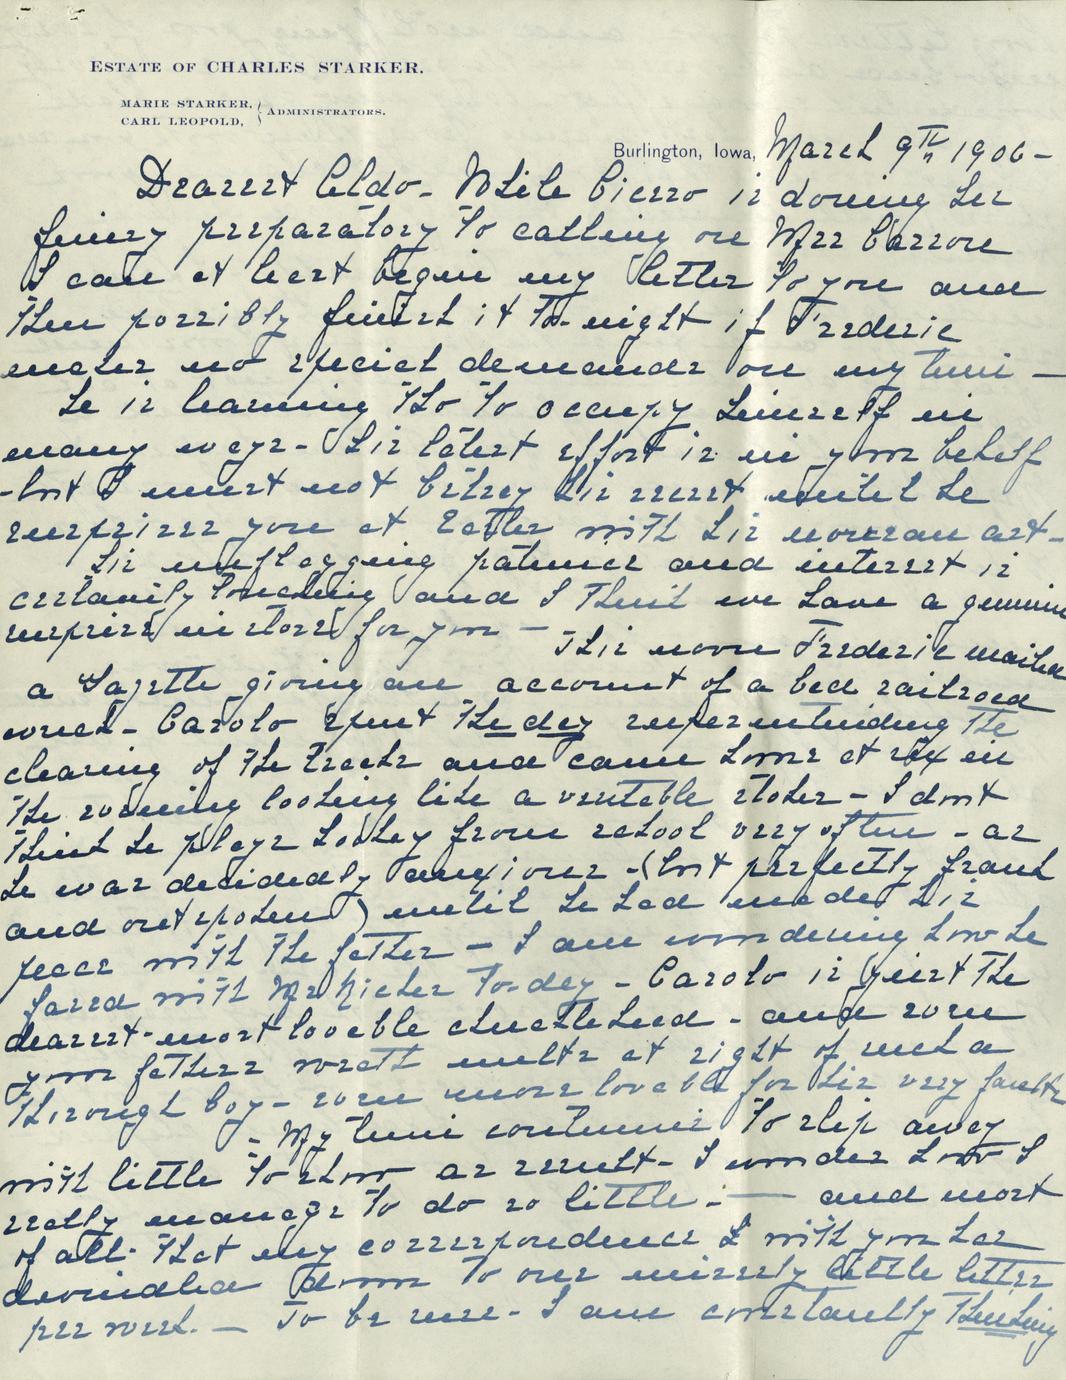 ESTATE OF CHARLES STARKER.
MARIE STARKER,
CARL LEOPOLD,
ADMINISTRATORS.
Burlington, Iowa, March 9th 1906-
Dearest Aldo- While Cierro is doning her
finery preparatory to calling on Mrs Carson
I can at least begin my letter to you and
then possibly finish it to-night if Frederic
makes no special demands on my time —
he is learning tho to occupy himself in
many ways- his latest effort is in your behalf
-but I must not betray his secret until he
surprises you at Easter with his norman art-
his unflagging patience and interest is
certainly touching and I think we have a genuine
surprise in store for you —
This noon Frederic mailed
a Gazette giving an account of a bad railroad
wreck- Carolo spent the day superintending the
clearing of the tracks and came home at six in
the evening looking like a veritable stoker - I dont
think he plays hookey from school very often - as
he was decidedly anxious -(but perfectly frank
and outspoken) until he had made his
peace with the father - I am wondering how he
fared with Mr to-day - Carolo is just the
dearest-most loveable chucklehead - and even
your fathers wrath melts at sight of such a
thorough boy- even more loveable for his very faults
- My time continues to slip away
with little to show as result- I wonder how I
really manage to do so little - — and most
of all- that my correspondence I with you has
dwindled down to one miserly little letter
per week. — To be sure- I am constantly thinking